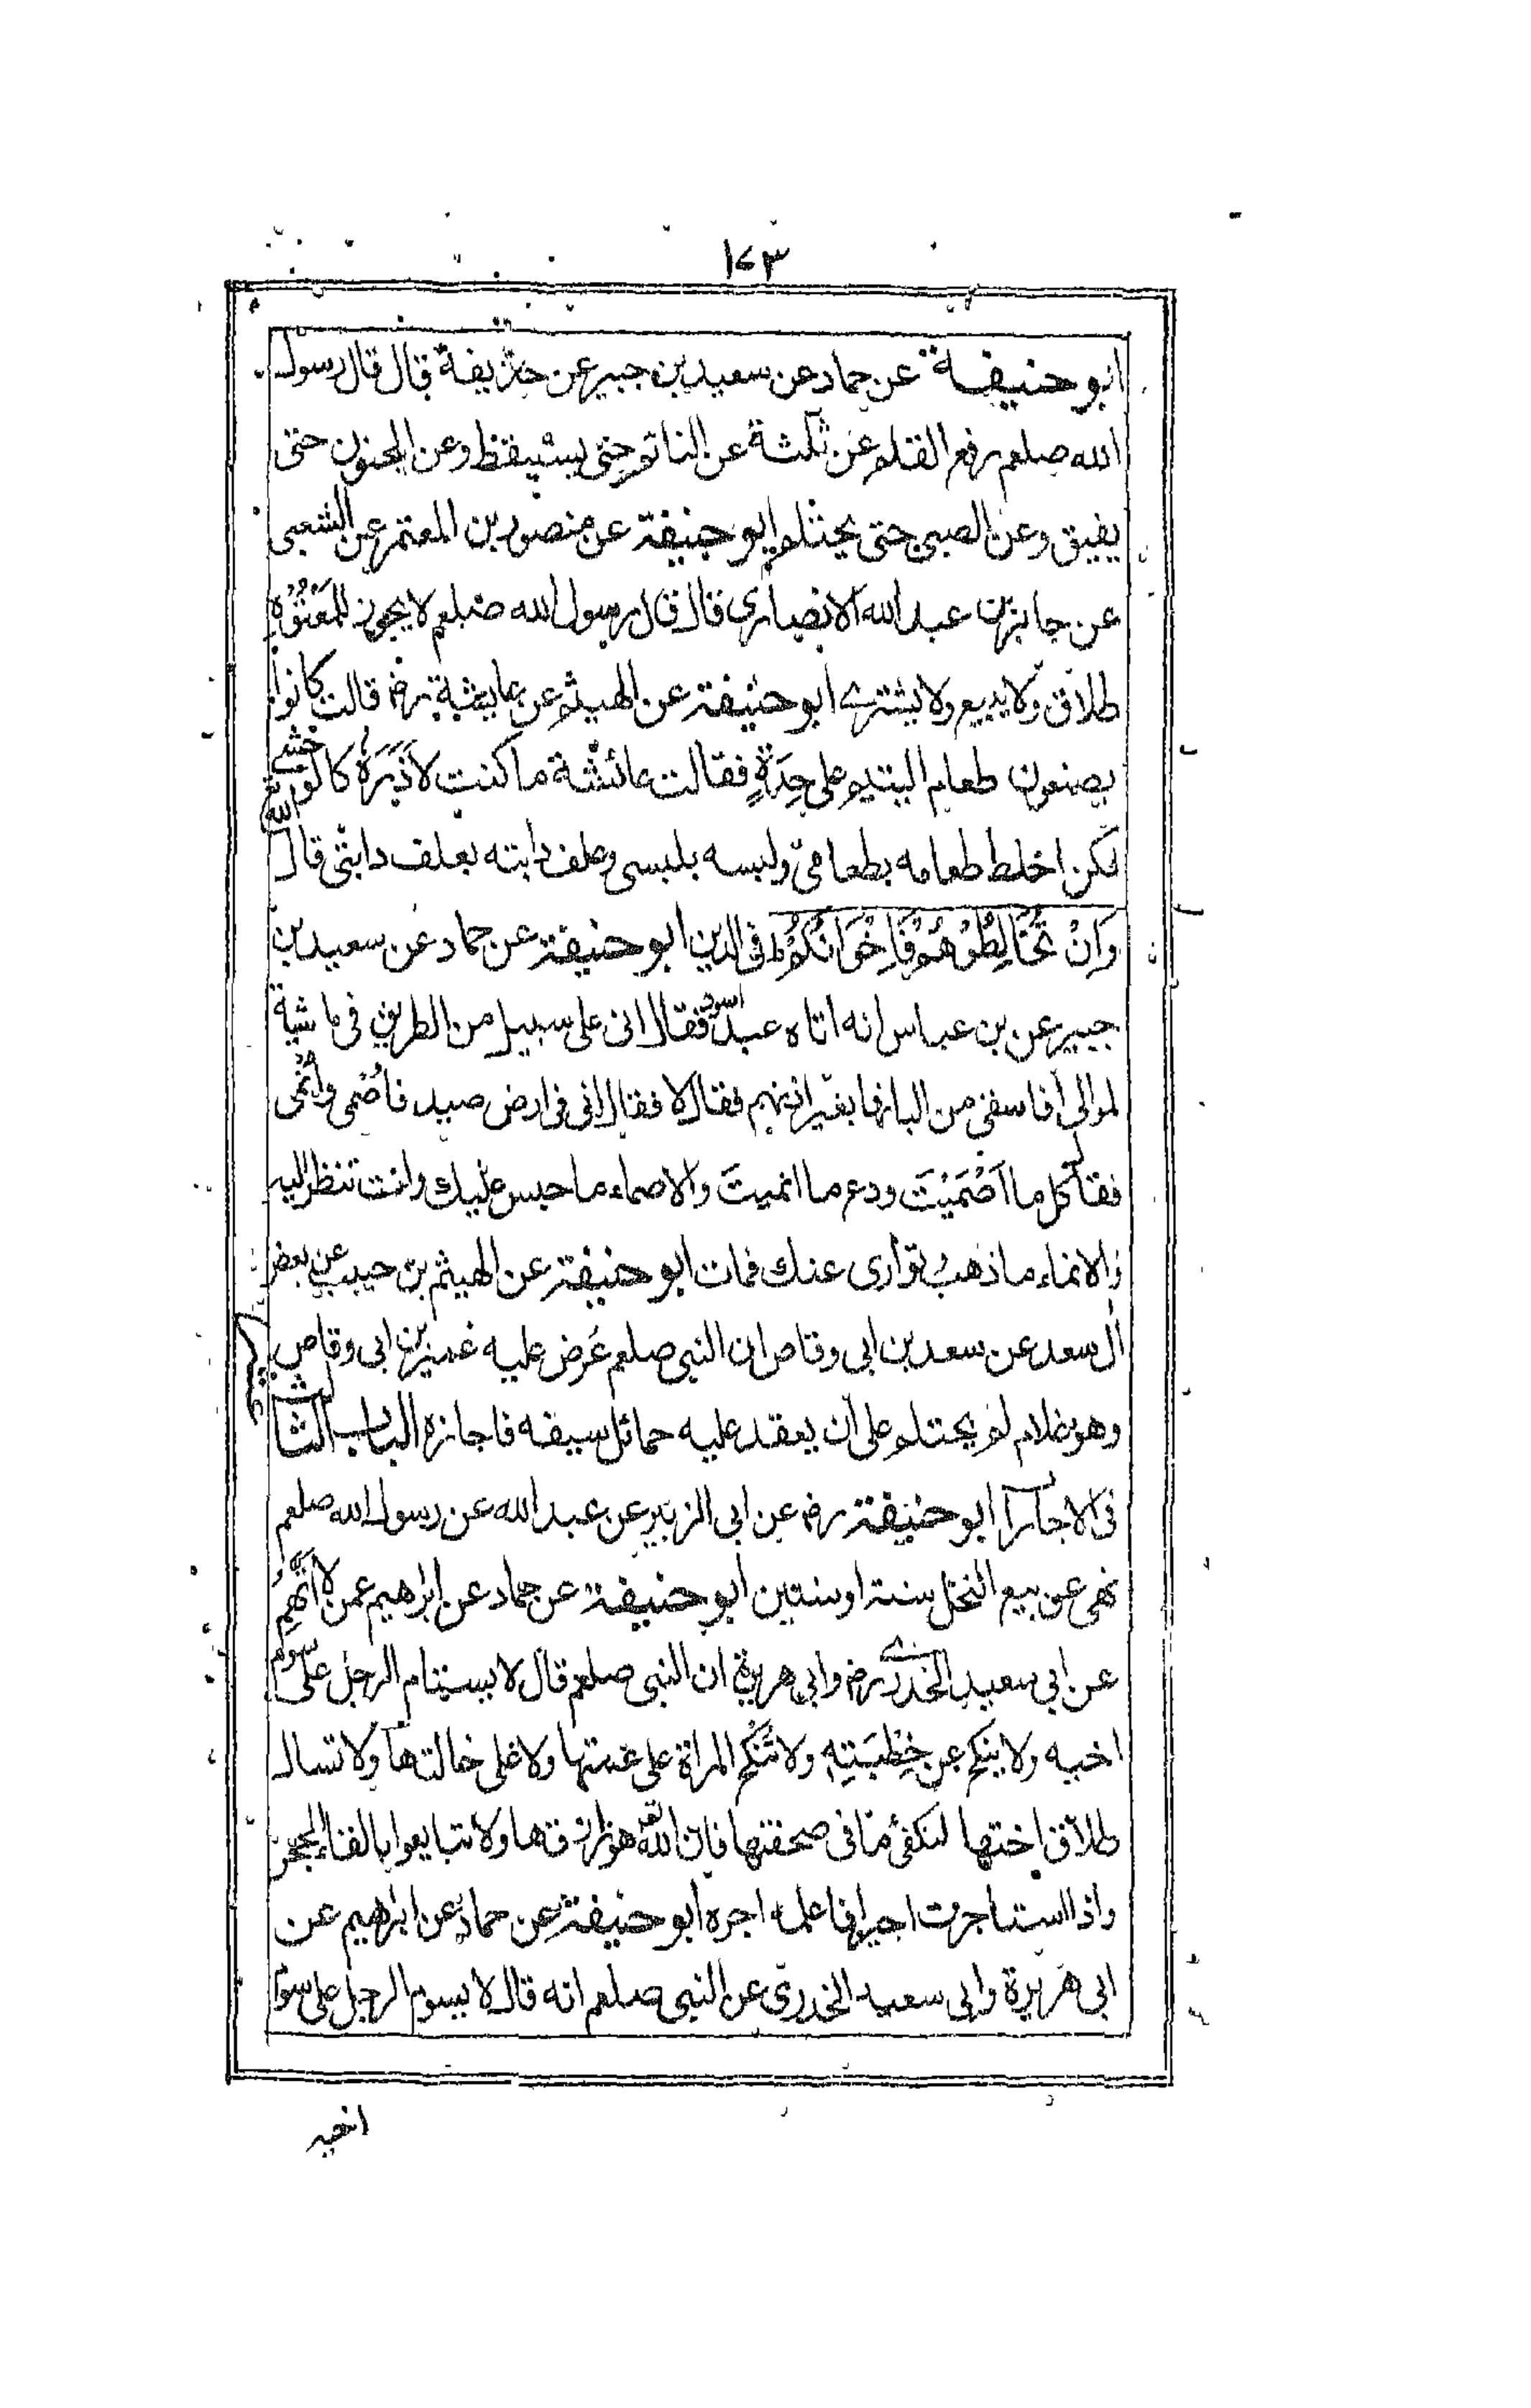 ١٧٣
ابو حنيفة عن حماد عن سعيد بن جبير عن حذيفة قال قال رسول
الله صلعم رفع القلم عن ثلثة عن النائم حتى يستيقظ وعن المجنون حتى
يفيق وعن الصبى حتى يحتلم ابو حنيفة عن منصور بن المعتمر عن الشعبى
عن جابر بن عبد الله الانصارى قال قال رسول الله صلعم لا يجوز للمَعْتُوْهِ
طلاق ولا بيع ولا يشترى ابو حنيفة عن الهيثم عن عايشة رض قالت كانوا
يصنعون طعام اليتيم على حِدَةٍ فقالت عائشة ما كنت لاَذَرَهُ كالوحشى
لكن اخلط طعامه بطعامى ولبسه بلبسى وعلف دابته بعلف دابتى قال الله تع
وَاِنْ تُخَالِطُوْهُمْ فَاِخْوَانُكُمْ فى الدين ابو حنيفة عن حماد عن سعيد بن
جبير عن بن عباس انه اتاه عبد اسود فقال انى على سبيل من الطريق فى ماشية
لموالى افاسقى من البانها بغير اذنهم فقال لا فقال انى فى ارض صيد فاُصْمى واُنْمى
فقال كل ما اَصْمَيْتَ ودع ما انميتَ والاصماء ما حبس عليك وانت تنظر اليه
والانماء ما ذهب توارى عنك فمات ابو حنيفة عن الهيثم بن حبيب عن بعض
ال سعد عن سعد بن ابى وقاص ان النبى صلعم عَرض عليه عمير بن ابى وقاص
وهو غلام لم يحتلم على ان يعقد عليه حمائل سيفه فاجازه الباب الثالث عشر
فى الاجارا ابو حنيفة رض عن ابى الزبير عن عبد الله عن رسول الله صلعم
نهى عن بيع النخل سنة او سنتين ابو حنيفة عن حماد عن ابراهيم عمن لا اَتَّهِمُ
عن ابى سعيد الخدرى رض وابى هريرة ان النبى صلعم قال لا يستام الرجل على سوم
اخيه ولا ينكح عن خِطْبَتِهِ ولا تُنْكح المراة على عمتها ولا على خالتها ولا تسال
طلاق اختها لتكفئ ما فى صحفتها فان الله تع هو رازقها ولا تتبايعوا بالقاء الحجر
واذا استاجرت اجيرا فاعلمه اجره ابو حنيفة عن حماد عن ابراهيم عن
ابى هريرة وابى سعيد الخدرى عن النبى صلعم انه قال لا يسوم الرجل على سوم
اخيه